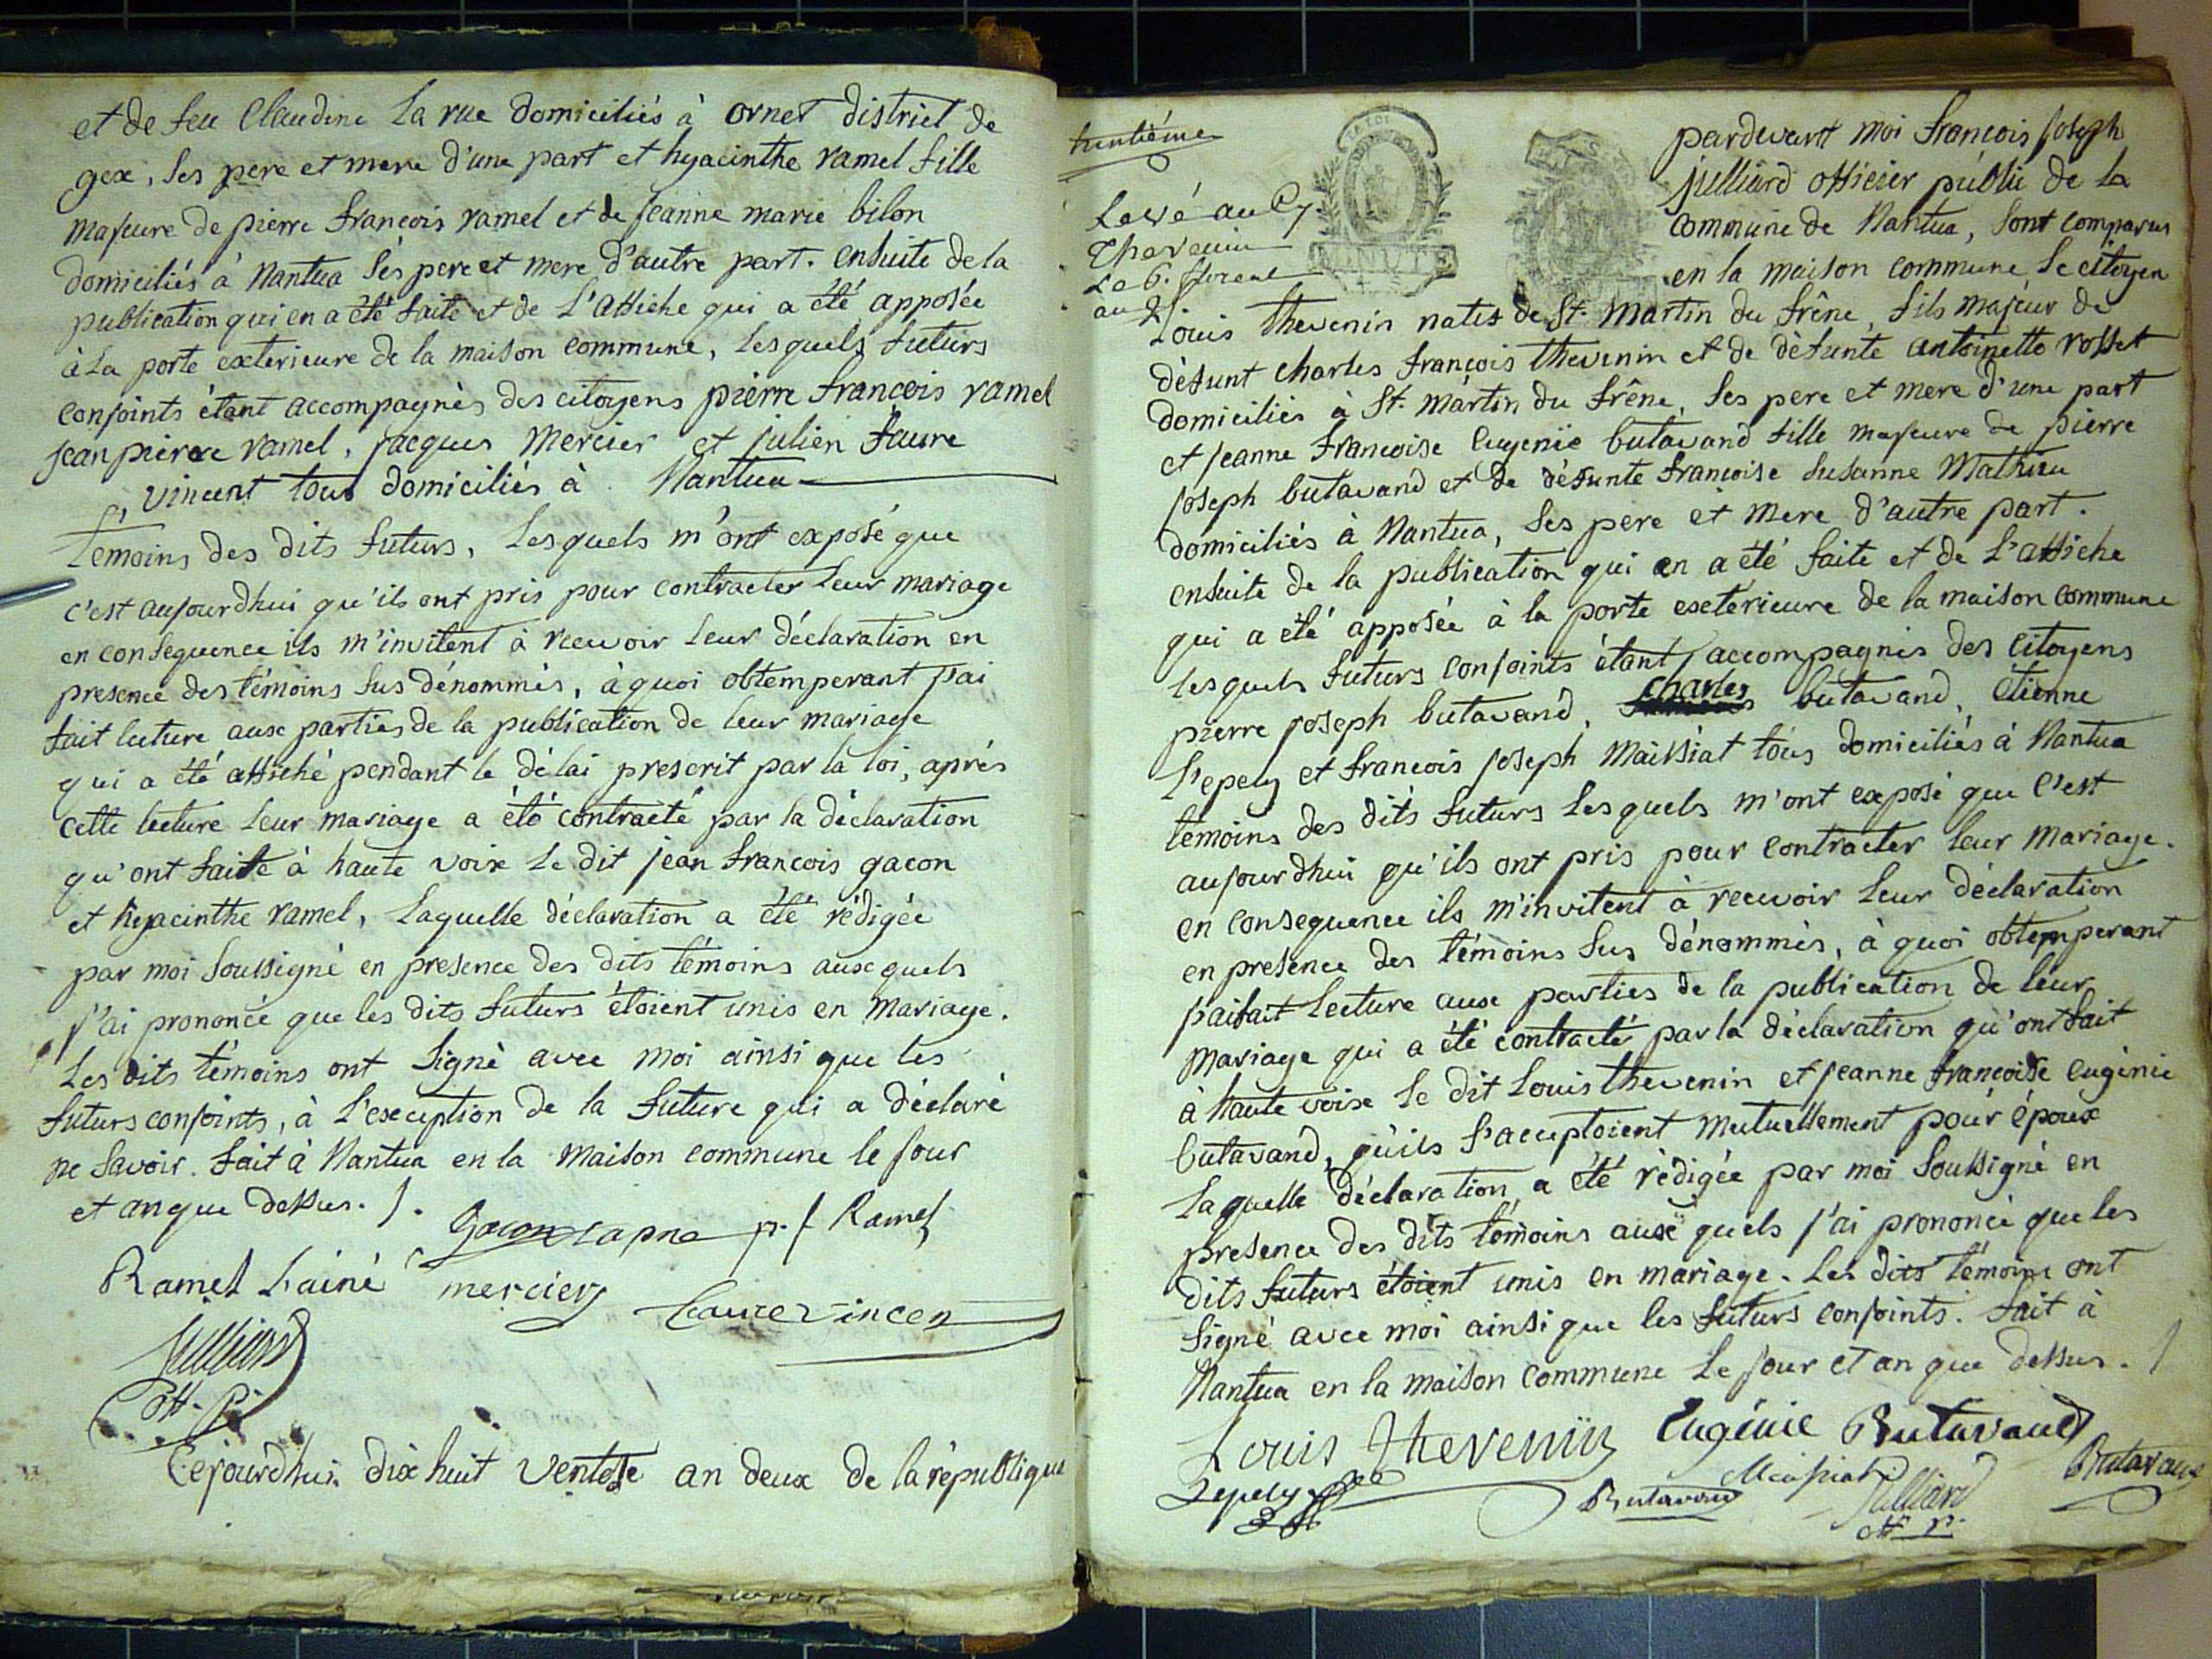 et de feu Claudine La rue domiciliés à ornet district de
gex, ses pere et mere d'une part et hyacinthe ramel fille
majeure de pierre francois ramel et de jeanne marie bilon
domiciliés à Nantua ses pere et mere d'autre part. ensuite de la
publication qui en a été faite et de L'affiche qui a été apposée
à La porte exterieure de la maison commune, lesquels futurs
conjoints étant accompagnés des citoyens pierre francois ramel
jean pierre ramel, jacques Mercier et julien faure
vincent tous domiciliés à Nantua
témoins des dits futurs, Lesquels m'ont exposé que
c'est aujourdhui qu'ils ont pris pour contracter Leur mariage
en consequence ils m'invitent à recevoir Leur déclaration en
presence des témoins sus dénommés, à quoi obtemperant j'ai
fait lecture aux parties de la publication de leur mariage
qui a été affiché pendant le délai prescrit par la loi, après
cette lecture Leur mariage a été contracté par la déclaration
qu'ont faite à haute voix Le dit jean francois gacon
et hyacinthe ramel, Laquelle déclaration a été rédigée
par moi soussigné en presence des dits témoins aux quels
j'ai prononcé que les dits futurs étoient unis en mariage.
Les dits témoins ont signé avec moi ainsi que les
futurs conjoints, à L'exception de la future qui a déclaré
ne savoir. fait à Nantua en la maison commune le jour
et an que dessus. /.
Gacon p. f Ramel
Ramel L'ainé mercier faure vincen
Julliard
off. p.
Cejourdhui dix huit Ventose an deux de la république
trentième
Levé au Cy
Thevenin
Le 6. floreal
an 2
LA LOI
MINUTE
pardevant moi francois joseph
julliard officier public de la
commune de Nantua, sont comparus
en la maison commune Le citoyen
Louis thevenin natif de St. Martin du frêne, fils majeur de
défunt charles françois thevenin et de défunte antoinette rosset
domiciliés à St. martin du frêne, ses pere et mere d'une part
et jeanne francoise Eugenie butavand fille majeure de pierre
joseph butavand et de défunte francoise susanne Mathieu
domiciliés à Nantua, ses pere et mere d'autre part.
ensuite de la publication qui en a été faite et de L'affiche
qui a été apposée à la porte exterieure de la maison commune
lesquels futurs conjoints étant accompagnés des citoyens
pierre joseph butavand, charles butavand, étienne
L'epely et francois joseph Maissiat tous domiciliés à Nantua
témoins des dits futurs Lesquels m'ont exposé que C'est
aujourdhui qu'ils ont pris pour contracter Leur mariage.
en consequence ils m'invitent à recevoir Leur déclaration
en presence des témoins sus dénommés, à quoi obtemperant
j'ai fait Lecture aux parties de la publication de leur
mariage qui a été contracté par la déclaration qu'ont fait
à haute voix Le dit Louis thevenin et jeanne francoise eugénie
butavand, qu'ils s'acceptoient mutuellement pour époux
Laquelle déclaration a été rédigée par moi soussigné en
presence des dits témoins aux quels j'ai prononcé que les
dits futurs étoient unis en mariage. Les dits témoins ont
signé avec moi ainsi que les futurs conjoints. fait à
Nantua en la maison commune Le jour et an que dessus. /
Louis Thevenin Eugénie Butavand
Lepely Butavand Maissiat Julliard Butavand
off. p.